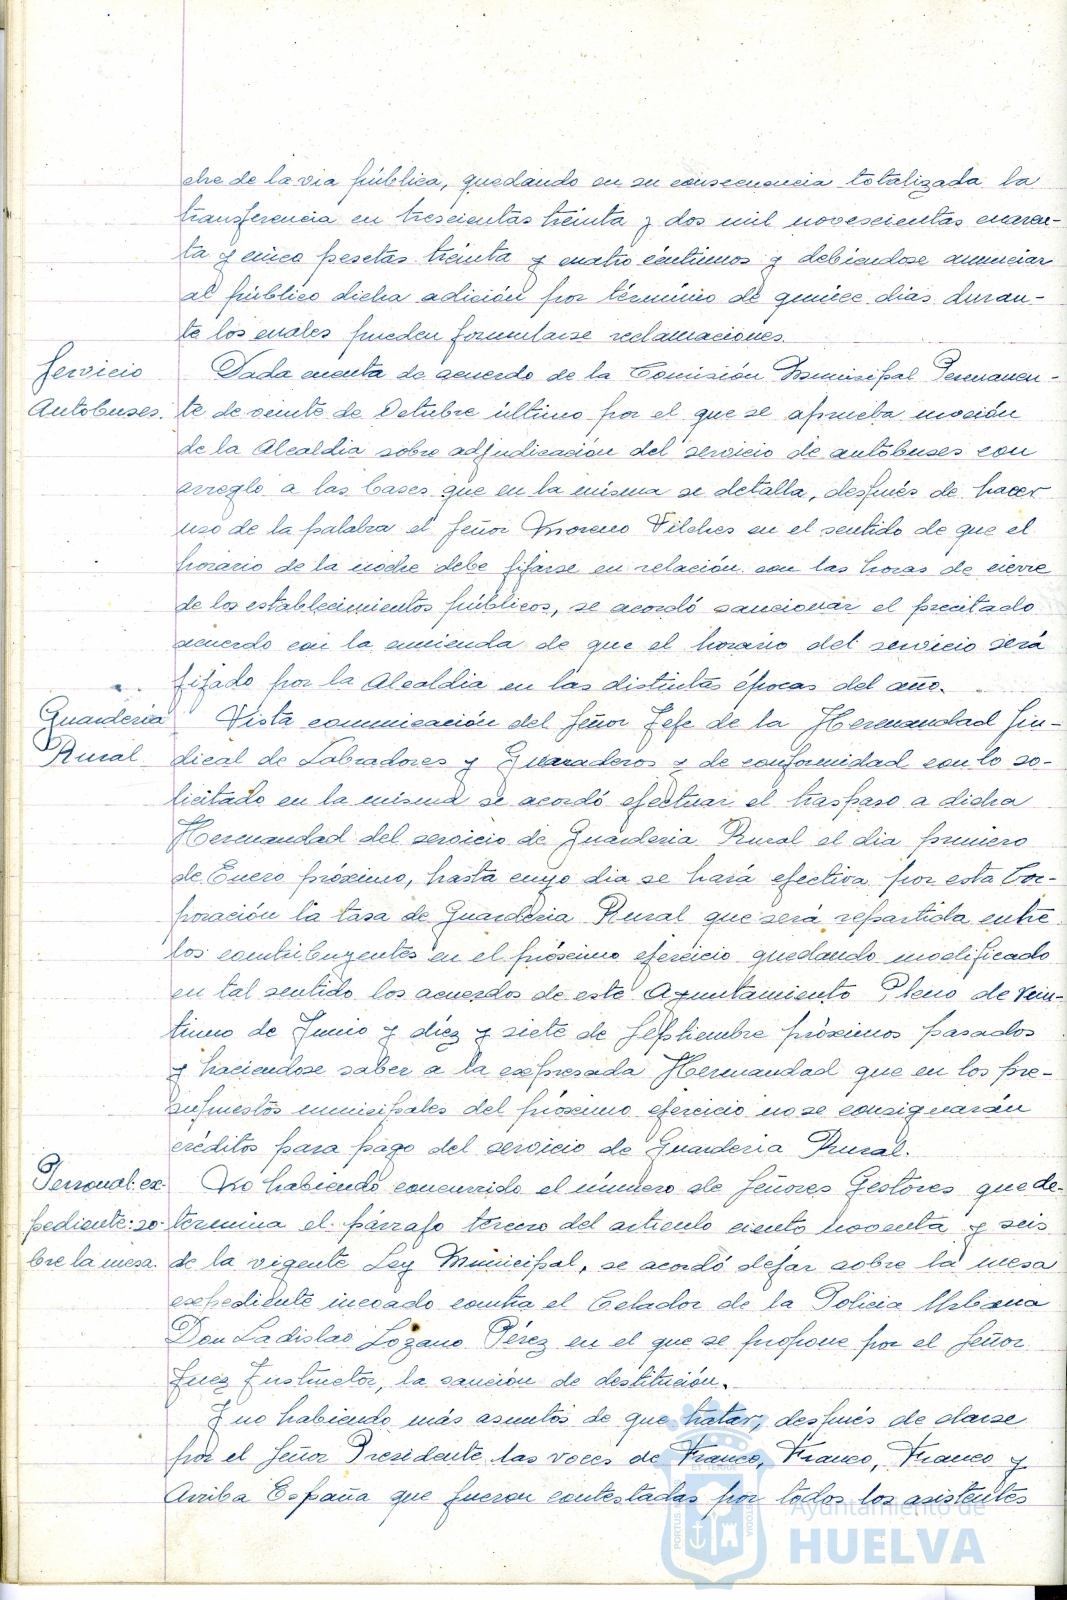 che de la via pública, quedando en su consecuencia totalizada la
transferencia en trescientas treinta y dos mil novescientas cuaren-
ta y cinco pesetas treinta y cuatro céntimos y debiéndose anunciar
al público dicha adición por término de quince dias duran-
te los cuales pueden formularse reclamaciones.
Servicio
Autobuses.
Dada cuenta de acuerdo de la Comisión Municipal Permanen-
te de veinte de Octubre último por el que se aprueba moción
de la Alcaldia sobre adjudicación del servicio de autobuses con
arreglo a las bases que en la misma se detalla, después de hacer
uso de la palabra el Señor Moreno Vilches en el sentido de que el
horario de la noche debe fijarse en relación con las horas de cierre
de los establecimientos públicos, se acordó sancionar el precitado
acuerdo con la enmienda de que el horario del servicio será
fijado por la Alcaldia en las distintas épocas del año.
Guarderia
Rural
Vista comunicación del Señor Jefe de la Hermandad Sin-
dical de Labradores y Ganaderos y de conformidad con lo so-
licitado en la misma se acordó efectuar el traspaso a dicha
Hermandad del servicio de Guarderia Rural el dia primero
de Enero próximo, hasta cuyo dia se hará efectiva por esta Cor-
poración la tasa de Guarderia Rural que será repartida entre
los contribuyentes en el próximo ejercicio quedando modificado
en tal sentido los acuerdos de este Ayuntamiento Pleno de vein-
tiuno de Junio y diez y siete de Septiembre próximos pasados
y haciendose saber a la expresada Hermandad que en los pre-
supuestos municipales del próximo ejercicio no se consignarán
créditos para pago del servicio de Guarderia Rural.
Personal: ex-
pediente: so-
bre la mesa.
No habiendo concurrido el número de Señores Gestores que de-
termina el párrafo tercero del articulo ciento noventa y seis
de la vigente Ley Municipal, se acordó dejar sobre la mesa
expediente incoado contra el Celador de la Policia Urbana
Don Ladislao Lozano Pérez en el que se propone por el Señor
Juez Instructor, la sanción de destitución.
Y no habiendo más asuntos de que tratar, después de darse
por el Señor Presidente las voces de Franco, Franco, Franco y
Arriba España que fueron contestadas por todos los asistentes
Ayuntamiento de
HUELVA